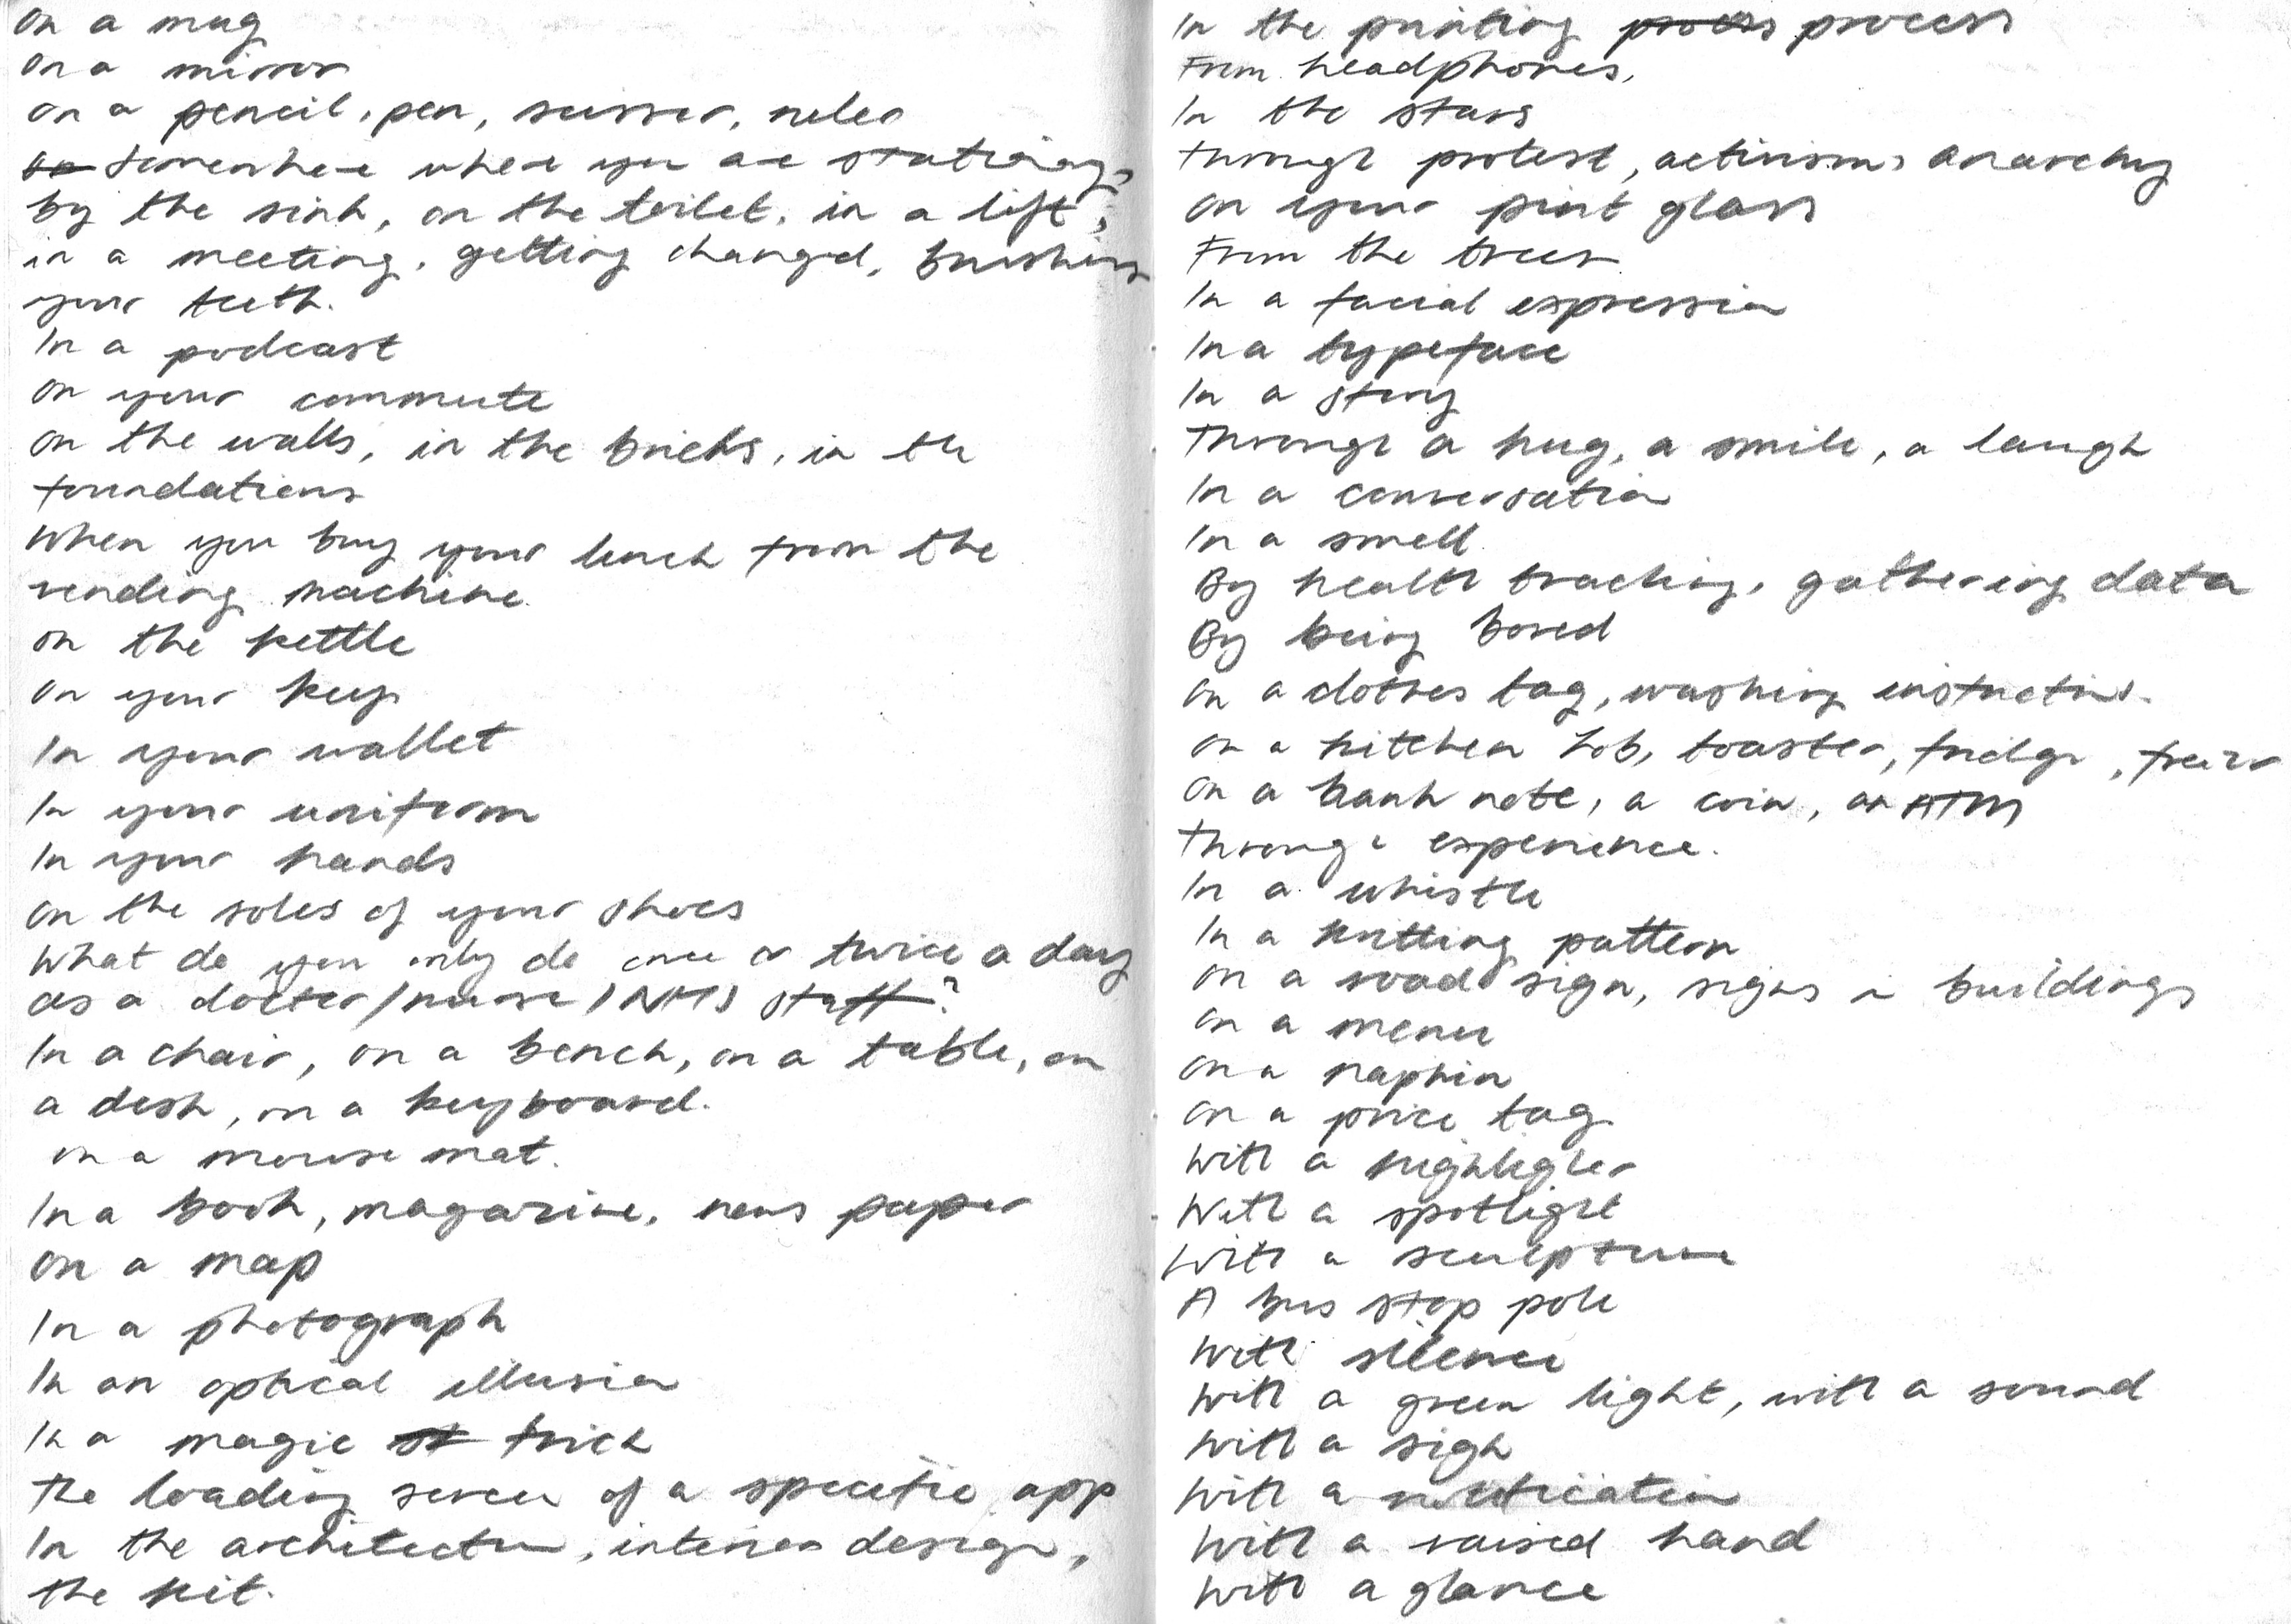 on a mug
on a mirror
on a pencil, pen, scissor, ruler
somewhere where you are stationary,
by the sink, on the toilet, in a lift,
in a meeting, getting changed, brushing
your teeth.
In a podcast
on your commute
on the walls, in the bricks, in the
foundations
When you buy your lunch from the
vending machine.
on the kettle
on your keys
In your wallet
In your uniform
In your hands
on the soles of your shoes
What do you only do once or twice a day
as a doctor/nurse/NHS staff?
In a chair, on a bench, on a table, on
a desk, on a keyboard.
on a mouse mat.
In a book, magazine, news paper
on a map
In a photograph
In an optical illusion
In a magic trick
the loading screen of a specific app
In the architecture, interior design,
the kit.
In the printing process process
From headphones,
In the stars
through protest, activism, anarchy
on your pint glass
From the trees
In a facial expression
In a typeface
In a story
through a hug, a smile, a laugh
In a conversation
In a smell
By health tracking, gathering data
By being bored
on a clothes tag, washing instructions.
on a kitchen hob, toaster, fridge, freezer
on a bank note, a coin, an ATM
through experience.
In a whistle
In a knitting pattern
on a road sign, signs in buildings
on a menu
on a napkin
on a price tag
With a highlighter
With a spotlight
With a sculpture
A bus stop pole
With silence
With a green light, with a sound
With a sigh
With a notification
With a raised hand
With a glance